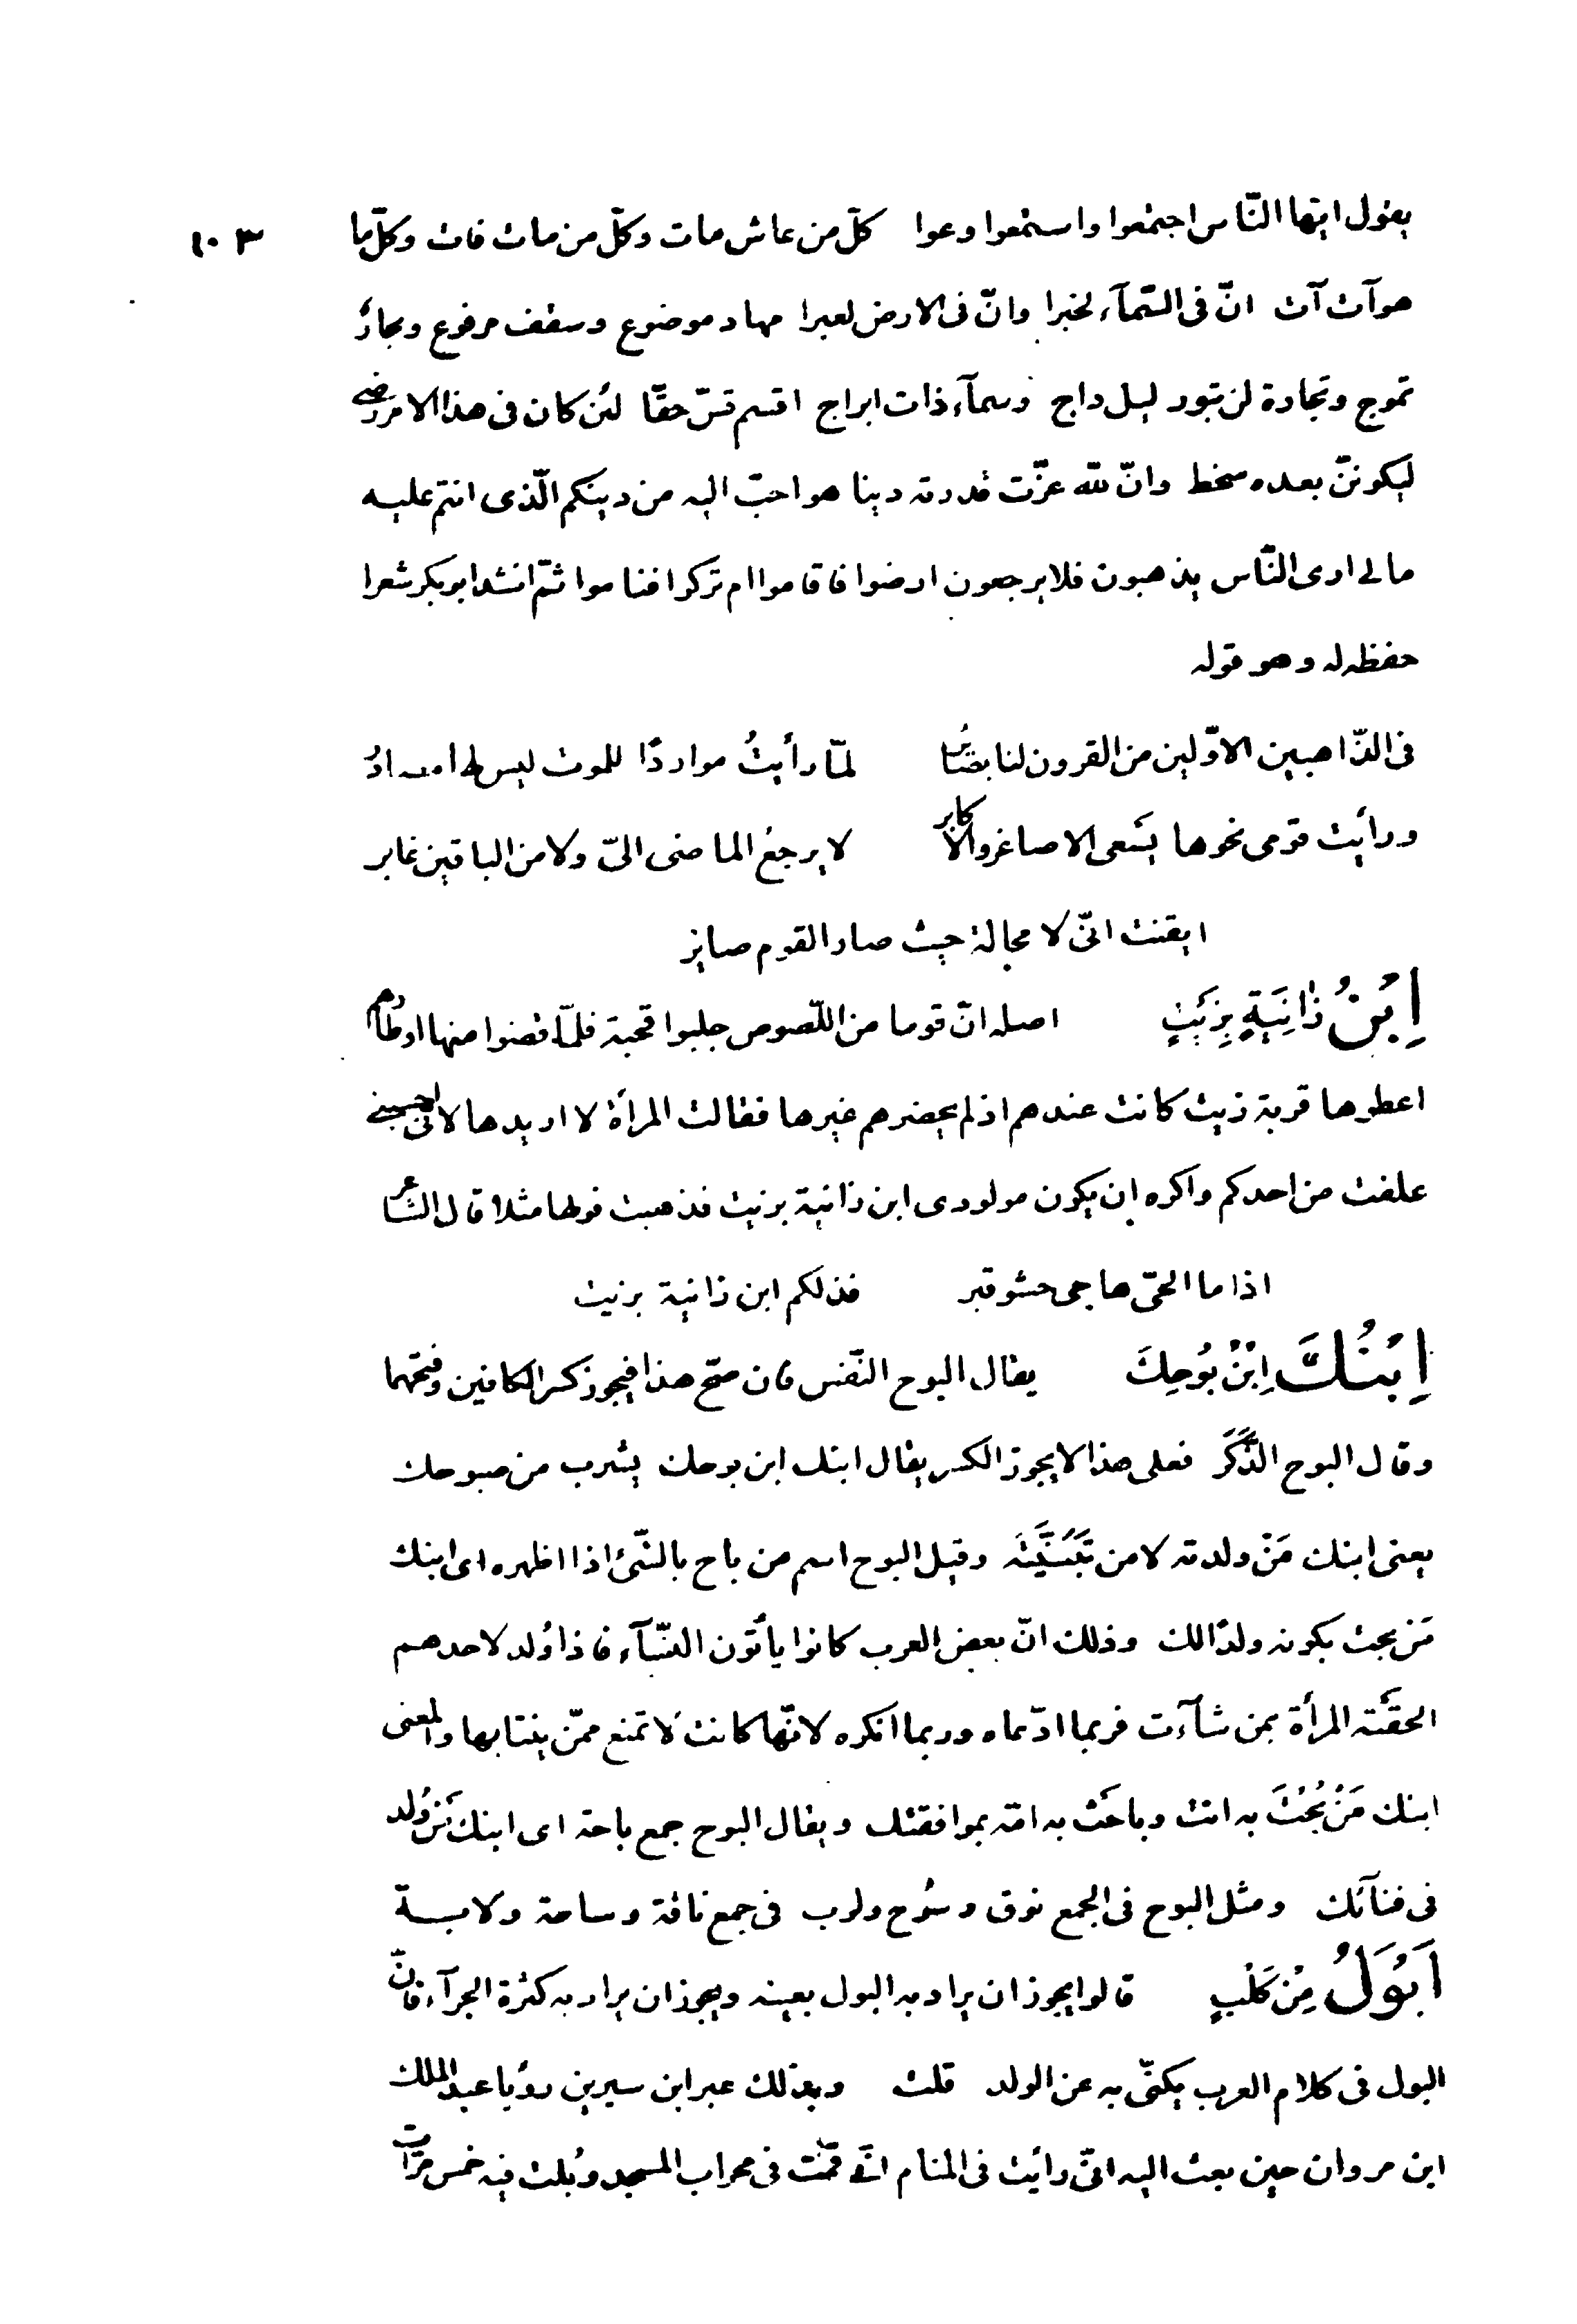 يقول ايّها النّاس اجتمعوا واستمعوا وعوا كلّ من عاش مات وكلّ من مات فات وكلّما
١٠٣
هوآت آت انّ فى السّمآء لخبرا وانّ فى الارض لعبرا مهاد موضوع وسقف مرفوع وبحارٌ
تموج وتجارة لن تبور ليل داج وسمآء ذات ابراج اقسم قسّ حقّا لئن كان فى هذا الامر رضى
ليكوننّ بعده سخط وانّ للّه عزّت قدرته دينا هو احبّ اليه من دينكم الّذى انتم عليه
مالى ارى النّاس يذهبون فلا يرجعون ارضوا فاقاموا ام تركوا فناموا ثمّ انشد ابو بكر شعرا
حفظه له وهو قوله
فى الذّاهبين الاوّلين من القرون لنا بصائر لمّا رأيتُ مواردًا للموت ليس لها مصادرُ
ورأيت قومى نحوها يَسَعى الاصاغر والاكابر لا يرجعُ الماضى الىّ ولا من الباقين غابر
ايقنت انّى لا محالة حيث صار القوم صاير
اِبْنُ زَانِيَةٍ بِزَيْتٍ اصله انّ قوما من اللّصوص جلبوا قحبة فلمّا قضوا منها اوطارهم
اعطوها قربة زيت كانت عندهم اذ لم يحضرهم غيرها فقالت المرأة لا اريدها لانّى احسبنى
علقت من احدكم واكره ان يكون مولودى ابن زانية بزيت فذهبت قولها مثلا قال الشّاعر
اذا ما الحىّ هاجى حشو قبر فذلكم ابن زانية بزيت
اِبْنُكَ اِبْنُ بُوحِكَ يقال البوح النّفس فان صحّ هذا فيجوز كسر الكافين وفتحهما
وقال البوح الذَّكَرَ فعلى هذا لا يجوز الكسر يقال ابنك ابن بوحك يشرب من صبوحك
يعنى ابنك مَنْ ولدته لا من تَبَنَّيْتَه وقيل البوح اسم من باح بالشّىئ اذا اظهره اى ابنك
مَن بحت بكونه ولدًا لك وذلك انّ بعض العرب كانوا يأتون النّسآء فاذا وُلد لاحدهم
الحقَته المرأة بمن شآءت فربما ادّعاه وربما انكره لانّها كانت لا تمنع ممّن ينتابها والمعنى
ابنك مَنْ بُحْتَ به انت وباحَت به امّه بموافقتك ويقال البوح جمع باحة اى ابنك مَن وُلد
فى فنآئك ومثل البوح فى الجمع نوق وسُوح ولوب فى جمع ناقة وساحة ولابسة
اَبْوَلُ مِنْ كَلْبٍ قالوا يجوز ان يراد به البول بعينه ويجوز ان يراد به كثرة الجرآء فانّ
البول فى كلام العرب يكنّى به عن الولد قلت وبذلك عبر ابن سيرين رؤيا عبد الملك
ابن مروان حين بعث اليه انّى رأيت فى المنام انّى قُمْت فى محراب المسجد وبُلت فيه خمس مرّات